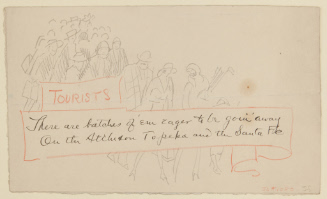 TOURISTS
There are batches of 'em eager to be goin' away
On the Atchison Topeka and the Santa Fe